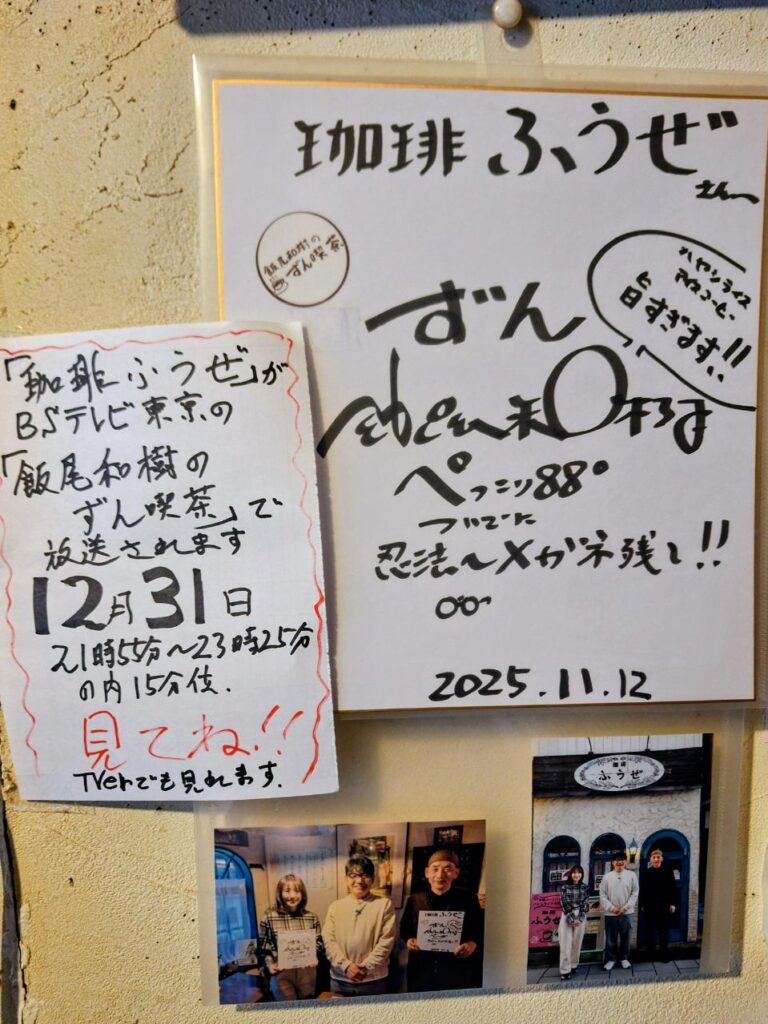 珈琲 ふうぜ
さんへ
飯尾和樹の
ずん喫茶
ハヤシライス
アイスコーヒー
旨すぎます!!
ずん
ぺっこり88°
ついでに
忍法〜メガネ残し!!
2025.11.12
「珈琲ふうぜ」が
BSテレビ東京の
「飯尾和樹の
ずん喫茶」で
放送されます
12月31日
21時55分〜23時25分
の内15分位.
見てね!!
TVerでも見れます.
珈琲
ふうぜ
珈琲 ふうぜ
ずん
ずん
珈琲
ふうぜ